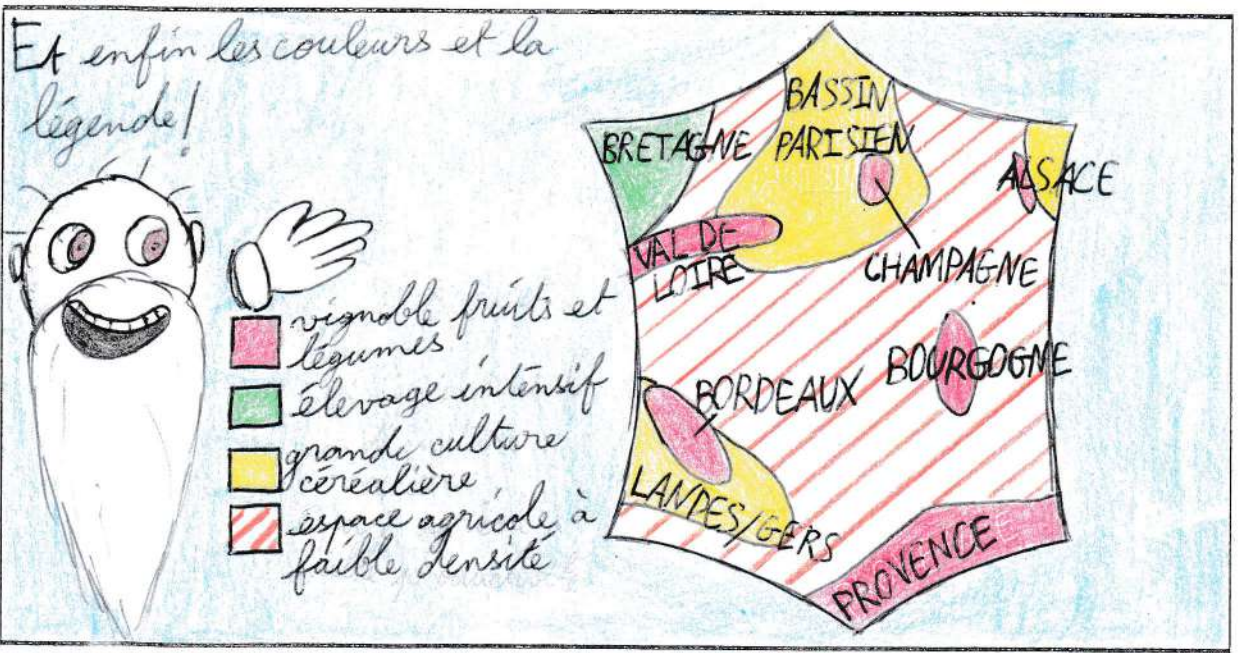 Et enfin les couleurs et la
légende!
vignoble fruits et
légumes
élevage intensif
grande culture
céréalière
espace agricole à
faible densité
BASSIN
PARISIEN
BRETAGNE
ALSACE
VAL DE
LOIRE
CHAMPAGNE
BOURGOGNE
BORDEAUX
LANDES/GERS
PROVENCE